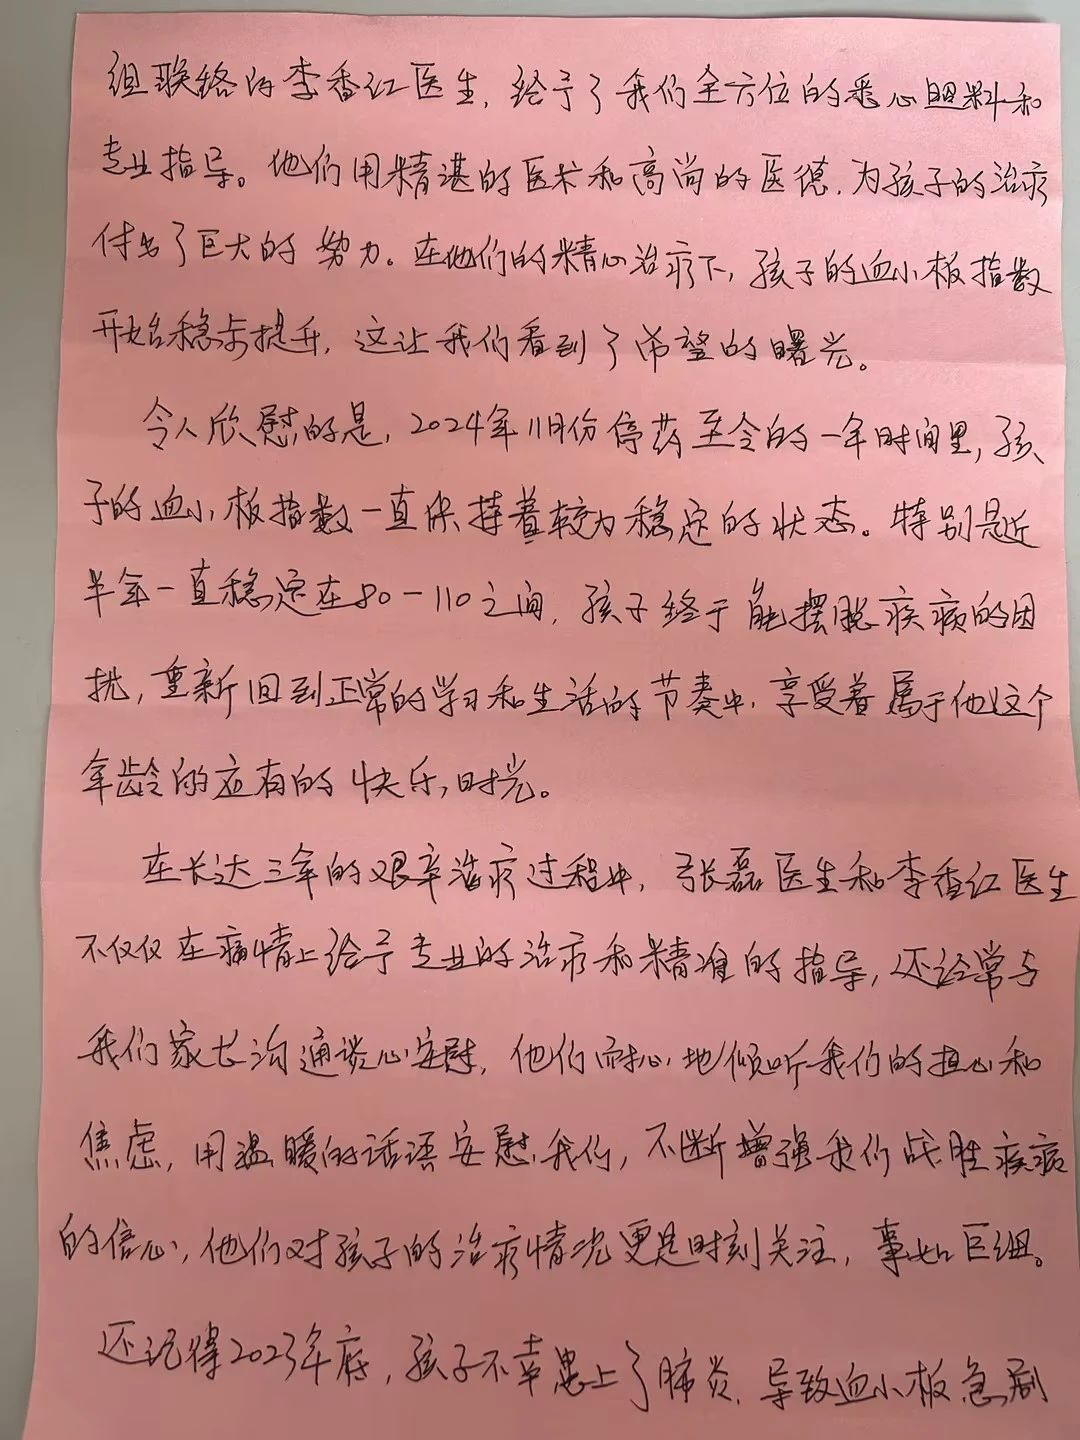 组联络的李香红医生，给予了我们全方位的悉心照料和
专业指导。他们用精谌的医术和高尚的医德，为孩子的治疗
付出了巨大的努力。在他们的精心治疗下，孩子的血小板指数
开始稳步提升，这让我们看到了希望的曙光。
令人欣慰的是，2024年11月份停药至今的一年时间里，孩
子的血小板指数一直保持着较为稳定的状态。特别是近
半年一直稳定在80-110之间，孩子终于能摆脱疾病的困
扰，重新回到正常的学习和生活的节奏中，享受着属于他这个
年龄的应有的快乐时光。
在长达三年的艰辛治疗过程中，张磊医生和李香红医生
不仅仅在病情上给予专业的治疗和精准的指导，还经常与
我们家长沟通谈心安慰，他们耐心地倾听我们的担心和
焦虑，用温暖的话语安慰我们，不断增强我们战胜疾病
的信心，他们对孩子的治疗情况更是时刻关注，事如巨细。
还记得2023年底，孩子不幸患上了肺炎，导致血小板急剧